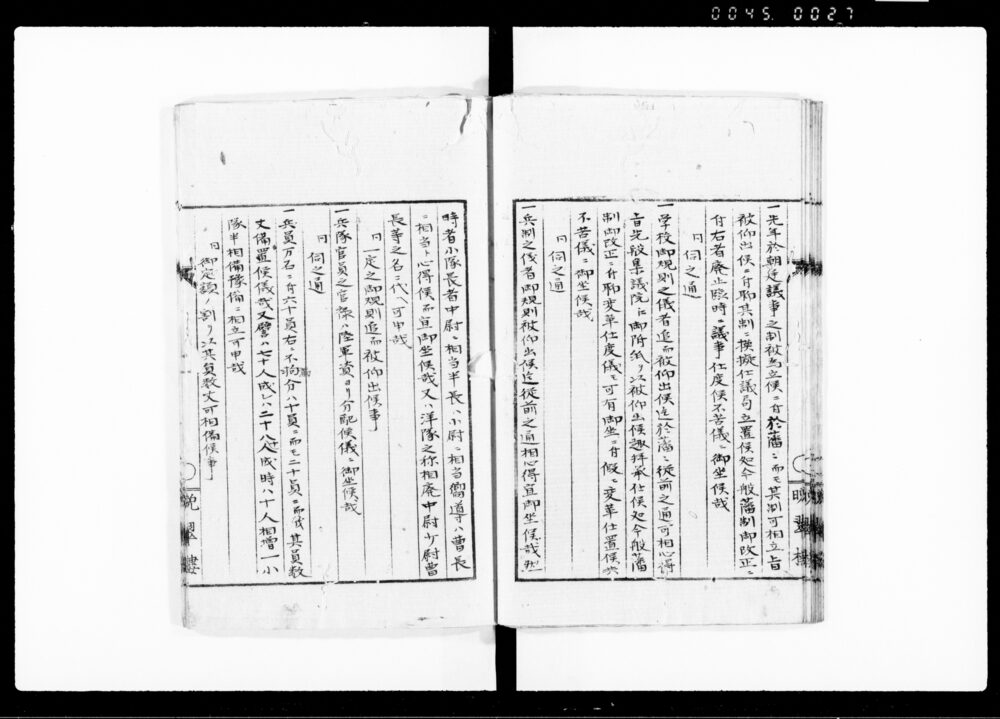 0045. 0027
一先年於朝廷議事之制被為立候ニ付於藩ニ而モ其制可相立旨
被仰出候ニ付聊其制ニ模擬仕議局立置候処今般藩制御改正ニ
付右者廃止臨時ニ議事仕度候不苦儀ニ御坐候哉
同 伺之通
一学校御規則之儀者追而被仰出候迄於藩ニ従前之通可相心得
旨先般集議院江御附紙ヲ以被仰出候趣拝承仕候処今般藩
制御改正ニ付聊変革仕度儀ニ可有御坐ニ付仮ニ変革仕置候共
不苦儀ニ御坐候哉
同 伺之通
一兵制之儀者御規則被仰出候迄従前之通相心得宜御坐候哉然
時者小隊長者中尉ニ相当半長ハ小尉ニ相当嚮導ハ曹長
ニ相当ト心得候而宜御坐候哉又ハ洋隊之称相廃中尉少尉曹
長等之名ニ代ヘ可申哉
同 一定之御規則追而被仰出候事
一兵隊官員之官禄ハ陸軍資ヨリ分配候儀ニ御坐候哉
同 伺之通
一兵員万石ニ付六十人員右ニ不拘分八十員ニ而モ二十員ニ而モ其員数
丈備置候儀哉又譬ハ七十人成レハ二十八成時ハ十人相増一小
隊半相備豫備ニ相立可申哉
同 御定額ノ割ヲ以其員数丈可相備候事
晩翠樓
晩翠樓